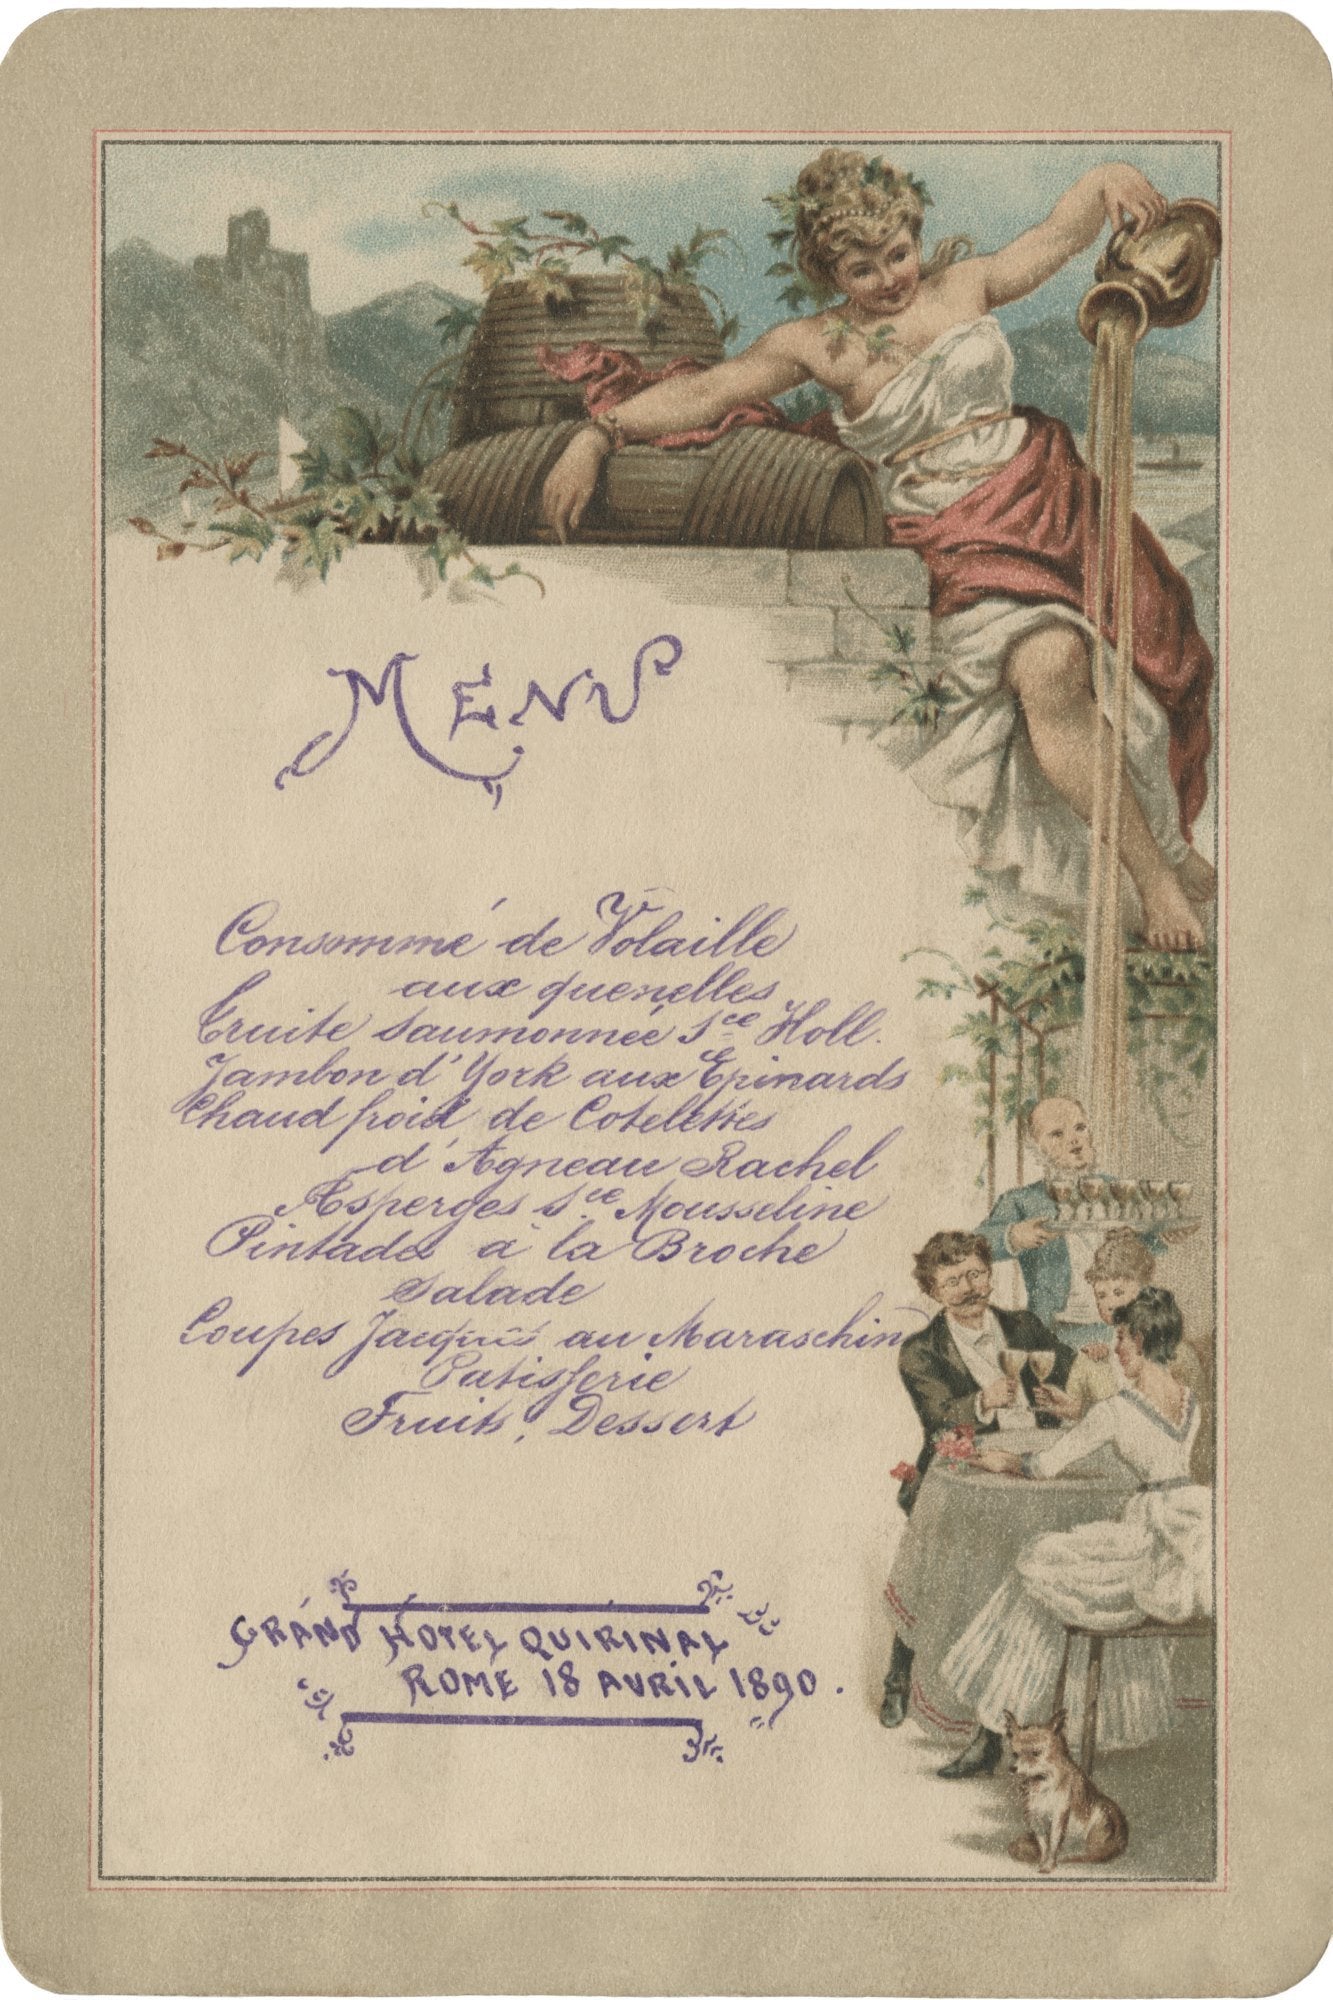 MENU
Consommé de Volaille
aux quenelles
Truite saumonnée sce Holl.
Jambon d'York aux Epinards
Chaud froid de Cotelettes
d'Agneau Rachel
Asperges sce Mousseline
Pintades à la Broche
Salade
Coupes Jacques au Maraschin
Patisserie
Fruits, Dessert
GRAND HOTEL QUIRINAL
ROME 18 AVRIL 1890.